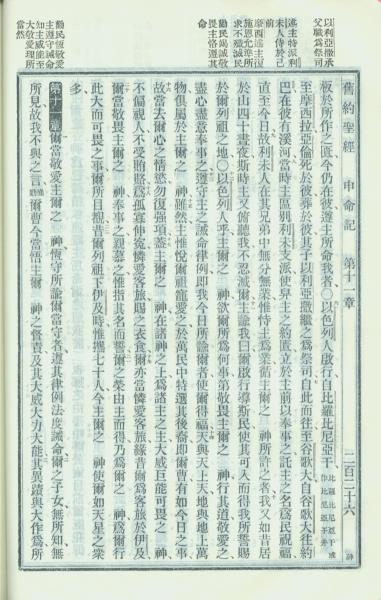 以利亞撒承
父職爲祭司
述主特派利
未人侍於己
前
摩西述主復
施恩允准所
求不殲滅民
勸民竭誠敬
畏主恪遵其
命
勸民恆敬愛
主遵守誡命
知主威能至
大敬愛理所
當然
舊約聖經 申命記 第十一章 二百二十六
板於所作之匱今仍在彼遵主所命我者〇以色列人啟行自比羅比尼亞干
至摩西拉亞倫死於彼葬於彼其子以利亞撒繼之爲祭司自此而往至谷歌大自谷歌大往約
巴在彼有溪河當時主區別利未支派使舁主之約匱立於主前以奉事之託主之名爲民祝福
直至今日故利未人在其兄弟中無分無業惟恃主爲業循主爾之 神所許之者我又如昔居
於山四十晝夜斯時主又俯聽我不忍滅爾主諭我曰爾啟行導斯民使其可入而得我所誓賜
於爾列祖之地〇以色列人乎主爾之 神欲爾所爲何事第敬畏主爾之 神行其道敬愛之
盡心盡意奉事之遵守主之誡命律例即我今日所諭爾者使爾得福天與天上天地與地上萬
物俱屬於主爾之 神雖然主惟悅爾祖寵愛之於萬民中特選其後裔即爾曹有如今日之事
故當去爾心之情慾勿復强項蓋主爾之 神在諸神之上爲諸主之主大威巨能可畏之 神
不偏視人不受賄賂爲孤寡伸寃憐愛客旅賜之衣食爾亦當憐愛客旅緣昔爾爲客旅於伊及
爾當敬畏主爾之 神奉事之親慕之惟指其名而誓爾之榮由主而得乃爲爾之 神爲爾行
此大而可畏之事爾所目覩昔爾列祖下伊及時惟攜七十人今主爾之 神使爾如天星之衆
多
第十一章 爾當敬愛主爾之 神恆守所諭爾當守者遵其律例法度誡命爾之子女無所知無
所見故我不與之言爾曹今當悟主爾 神之督責及其大威大力大能其異蹟與大作爲所